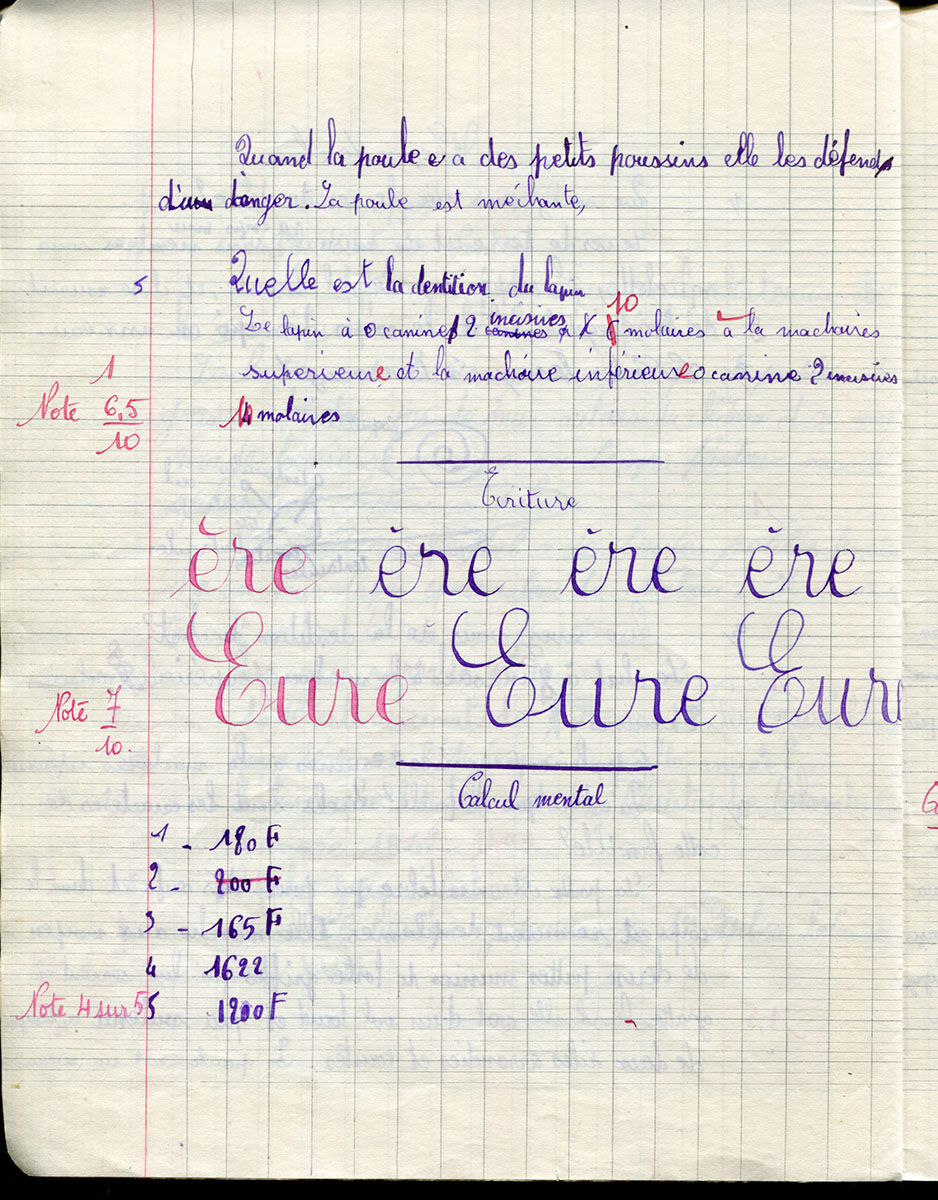 Quand la poule e a des petits poussins elle les défend
d'un danger. La poule est méchante,
5 Quelle est la dentition du lapin
10
incisives
Le lapin à 0 canine 2 canines molaires à la machoires
1 superieure et la machoire inférieure 0 canine 2 incisives
Note 6,5/10 molaires
Ecriture
ère ère ère ère
Eure Eure Eure
Note 7/10.
Calcul mental
1 - 180 F
2 - 200 F
3 - 165 F
4 1622
Note 4 sur 5 5 1200 F